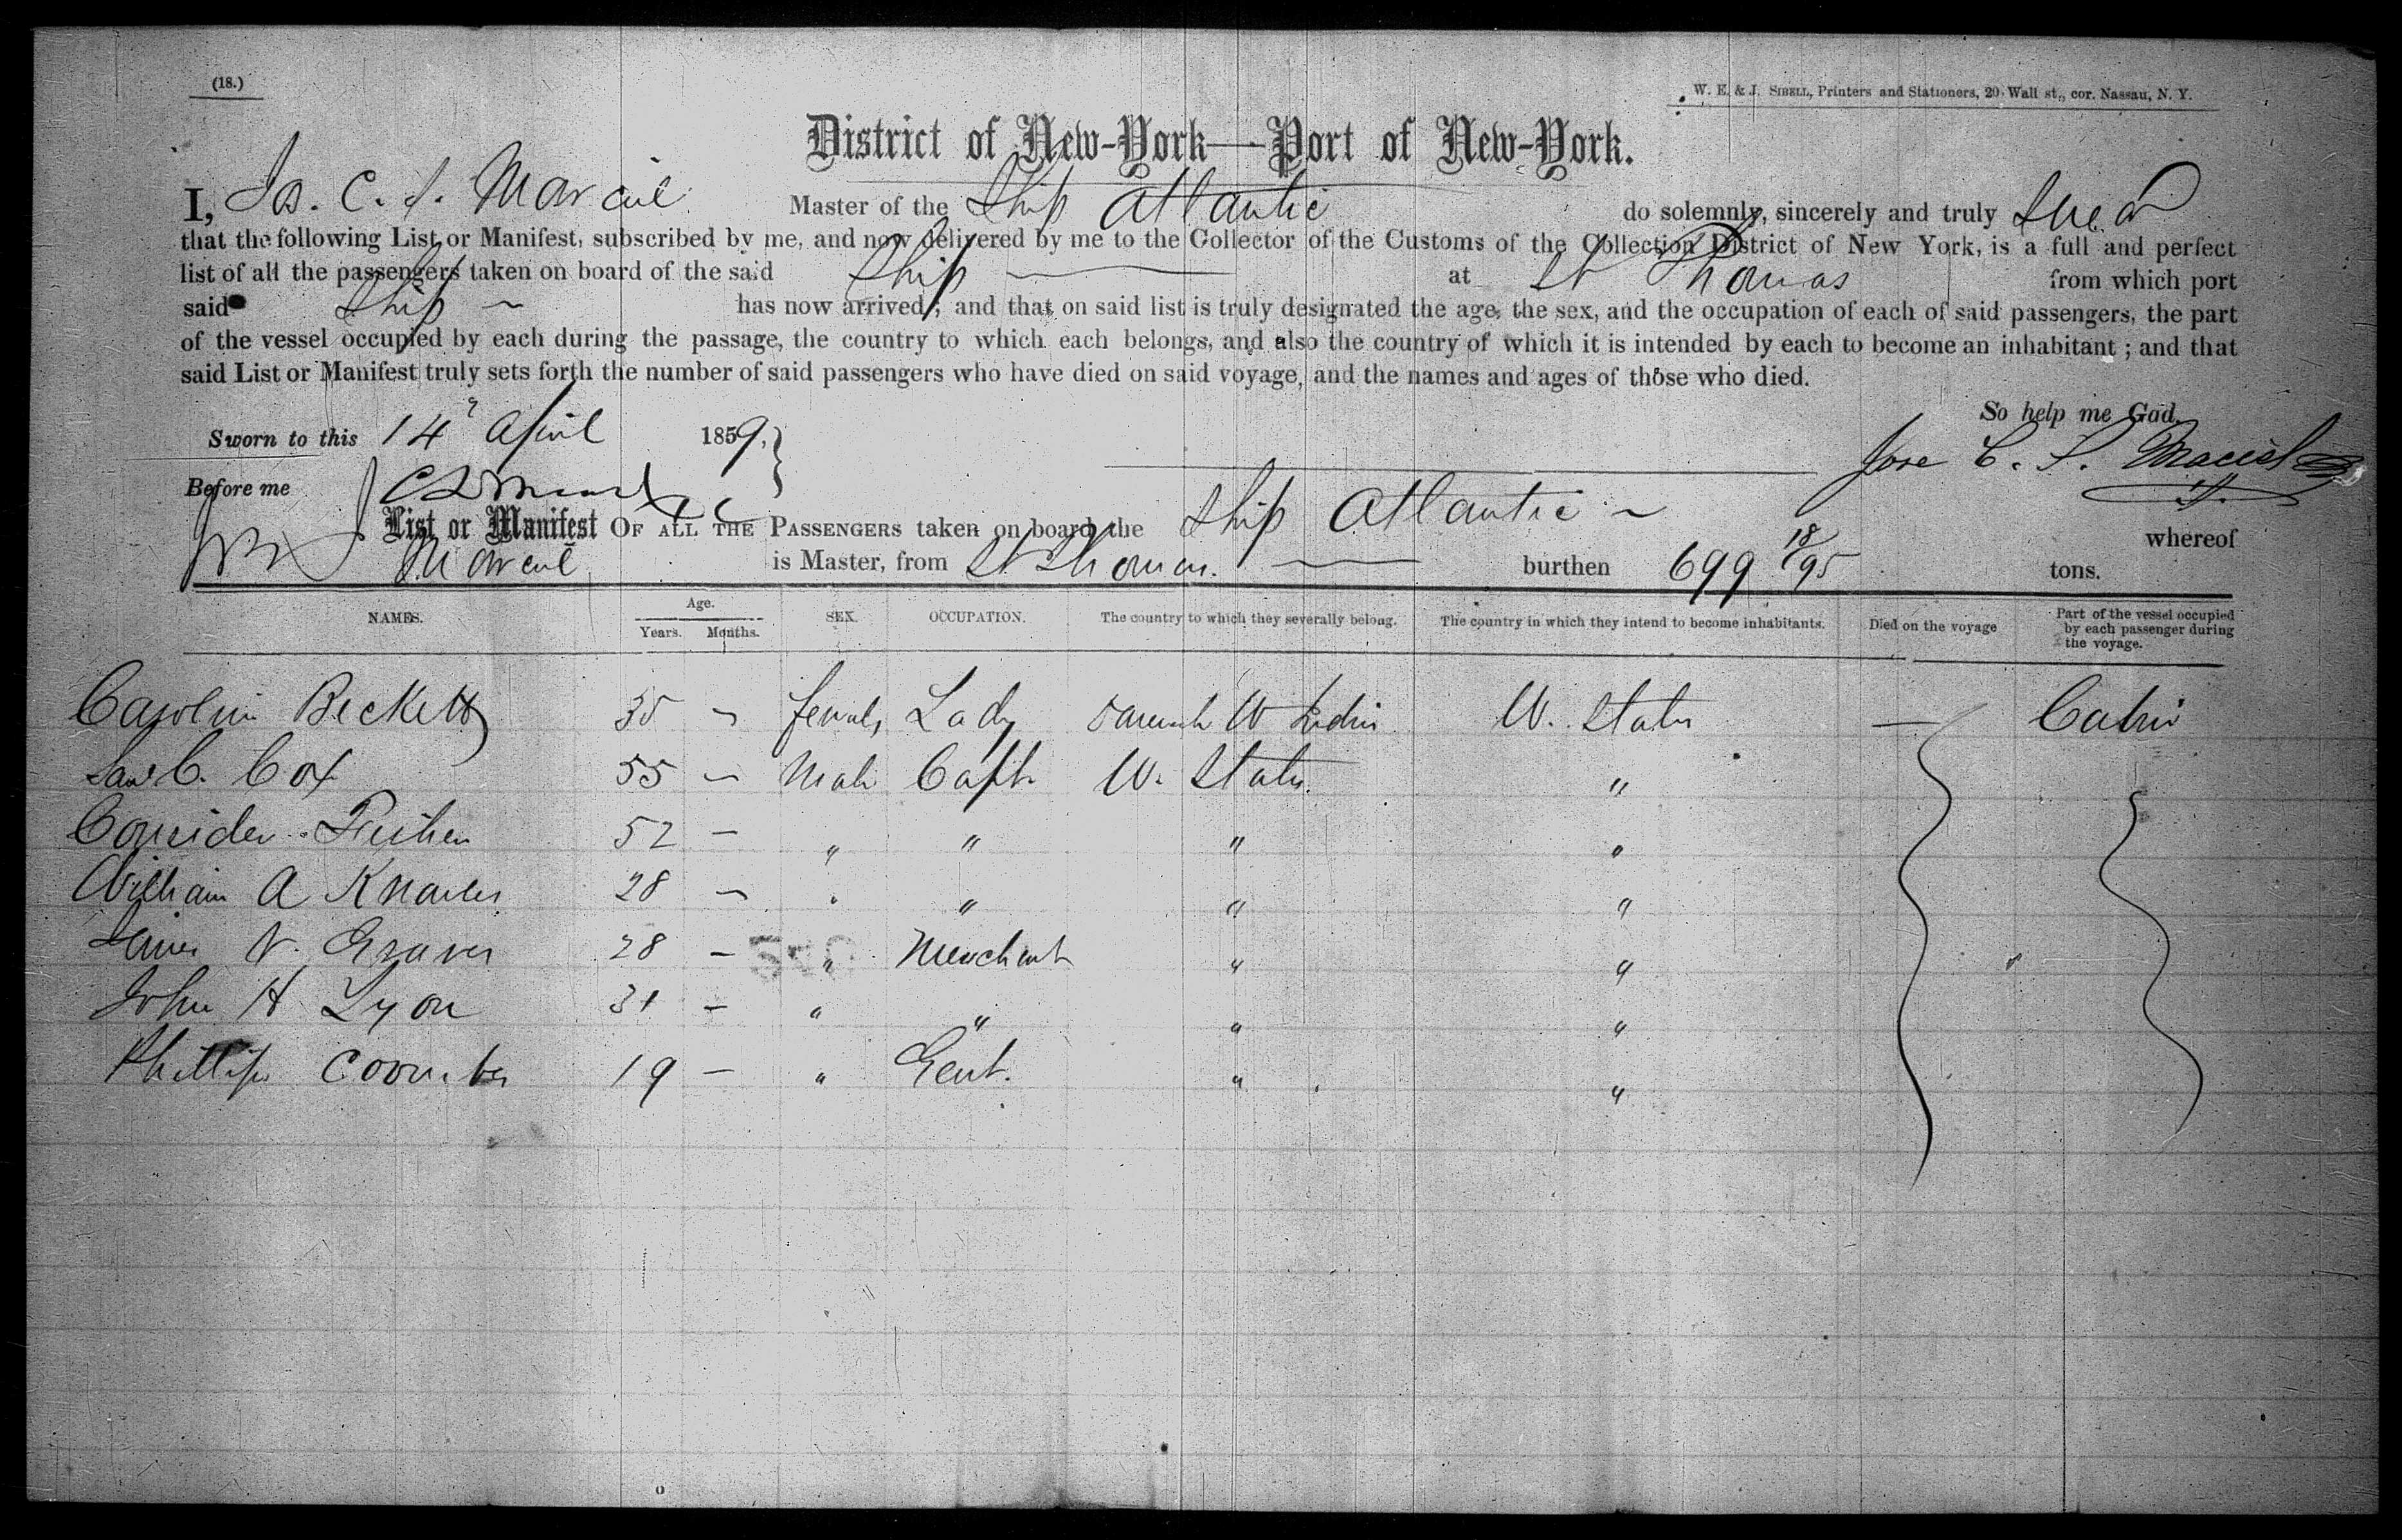 (18.)
W. E. & J. SIBELL, Printers and Stationers, 20 Wall st., cor. Nassau, N. Y.
District of New-York—Port of New-York.
I, Master of the Ship Atlantic do solemnly, sincerely and truly
that the following List or Manifest, subscribed by me, and now delivered by me to the Collector of the Customs of the Collection District of New York, is a full and perfect
list of all the passengers taken on board of the said Ship at St Thomas from which port
said Ship has now arrived; and that on said list is truly designated the age, the sex, and the occupation of each of said passengers, the part
of the vessel occupied by each during the passage, the country to which each belongs, and also the country of which it is intended by each to become an inhabitant; and that
said List or Manifest truly sets forth the number of said passengers who have died on said voyage, and the names and ages of those who died.
So help me God.
Sworn to this 14" April 1859.
Jose C. S. Maciel
Before me
List or Manifest OF ALL THE PASSENGERS taken on board the Ship Atlantic whereof
is Master, from St Thomas. burthen 699 18/95 tons.
NAMES. Age. Years. Months. SEX. OCCUPATION. The country to which they severally belong. The country in which they intend to become inhabitants. Died on the voyage Part of the vessel occupied by each passenger during the voyage.
Beckett 35 – female Lady W Indies U. States — Cabin
C. Cox 55 – Male Capt. U. States "
52 – " " " "
William A Knowles 28 – " " " "
N. Graves 28 – " Merchant " "
John H Lyon 31 – " " " "
Phillip Coombs 19 – " Gent. " "